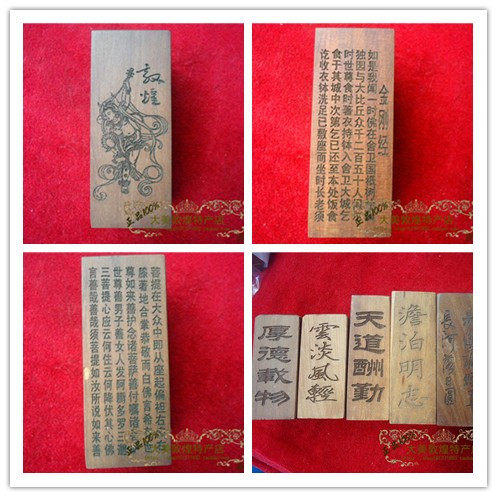 敦煌
正品100%
大美敦煌特产店
金刚经
如是我闻一时佛在舍卫国祇树
独园与大比丘众千二百五十人
时世尊食时著衣持钵入舍卫大城乞
食于其城中次第乞已还至本处饭食
讫收衣钵洗足已敷座而坐时长老须
正品100%
大美敦煌特产店
菩提在大众中即从座起偏袒右
膝著地合掌恭敬而白佛言希有
尊如来善护念诸菩萨善付嘱诸
世尊善男子善女人发阿耨多罗三藐
三菩提心应云何住云何降伏其心佛
言善哉善哉须菩提如汝所说如来善
正品100%
大美敦煌特产店
厚德載物
雲淡風輕
天道酬勤
澹泊明志
正品100%
大美敦煌特产店